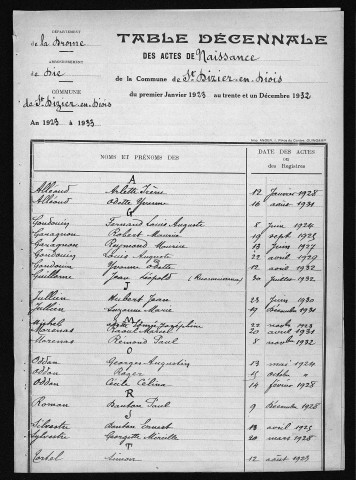 DÉPARTEMENT
de la Drôme
ARRONDISSEMENT
de Die
COMMUNE
de St Dizier-en-Diois
An 1923 à 1933
TABLE DÉCENNALE
DES ACTES DE Naissance
de la Commune de St Dizier-en-Diois
du premier Janvier 1923 au trente et un Décembre 1932
NOMS ET PRÉNOMS DES
DATE DES ACTES
ou
des Registres
A
Alléoud Arlette Irène 12 Janvier 1928
Alléoud Odette Yvonne 16 août 1931
G
Gondouin Fernand Louis Auguste 8 Juin 1924
Garagnon Robert Maurice 19 sept 1925
Garagnon Raymond Maurice 13 Juin 1927
Gondouin Louis Auguste 22 avril 1929
Gondouin Yvonne Odette 12 août 1932
Guillerme Jean Léopold 30 Juillet 1932
J
Jullien Hubert Jean 23 Juin 1930
Jullien Suzanne Marie 19 Décembre 1931
M
Michel Joséphine 22
Morenas Raoul Marcel 20 avril 1931
Morenas Rémond Paul 8 1932
O
Oddon Georges Augustin 13 mai 1924
Oddon Roger 15 octobre
Oddon Cécile Célina 14 février 1928
R
Roman Paul 9 Décembre 1928
S
Silvestre Ernest 13 avril 1925
Sylvestre Georgette Mireille 20 mars 1928
T
Simon 12 août 1923